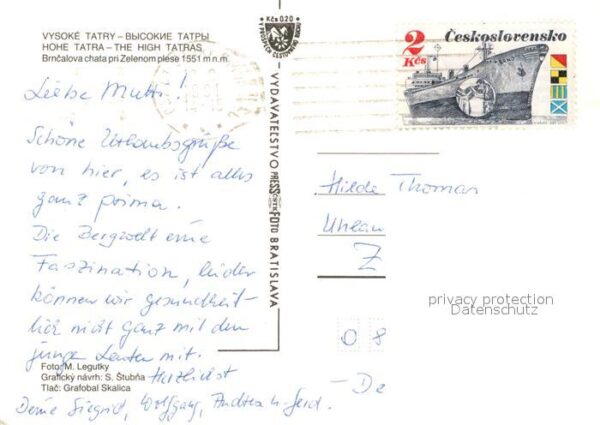 VYSOKÉ TATRY – ВЫСОКИЕ ТАТРЫ
HOHE TATRA – THE HIGH TATRAS
Brnčalova chata pri Zelenom plese 1551 m n. m.
Liebe Mutti!
Schöne Urlaubsgrüße
von hier, es ist alles
ganz prima.
Die Bergwelt eine
Faszination, leider
können wir gesundheit-
lich nicht ganz mit den
jungen Leuten mit.
Herzlichst
Deine Siegrid, Wolfgang, Andrea u. Gerd.
Foto: M. Legutky
Grafický návrh: S. Štubňa
Tlač: Grafobal Skalica
Kčs 0,20
VYDAVATEĽSTVO PRESSFOTO BRATISLAVA
2 Kčs
Československo
Hilde Thomas
Z
privacy protection
Datenschutz
O 8
– De